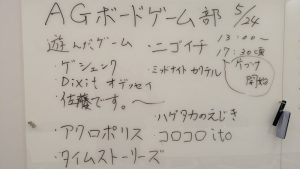 AGボードゲーム部 5/24
13:00〜
17:30頃
片づけ
開始
遊んだゲーム
・ゲシェンク
Dixit オデッセイ
・佐藤です。〜
・アクロポリス
・タイムストーリーズ
・ニゴイチ
・ミッドナイトカクテル
・ハゲタカのえじき
コロコロito